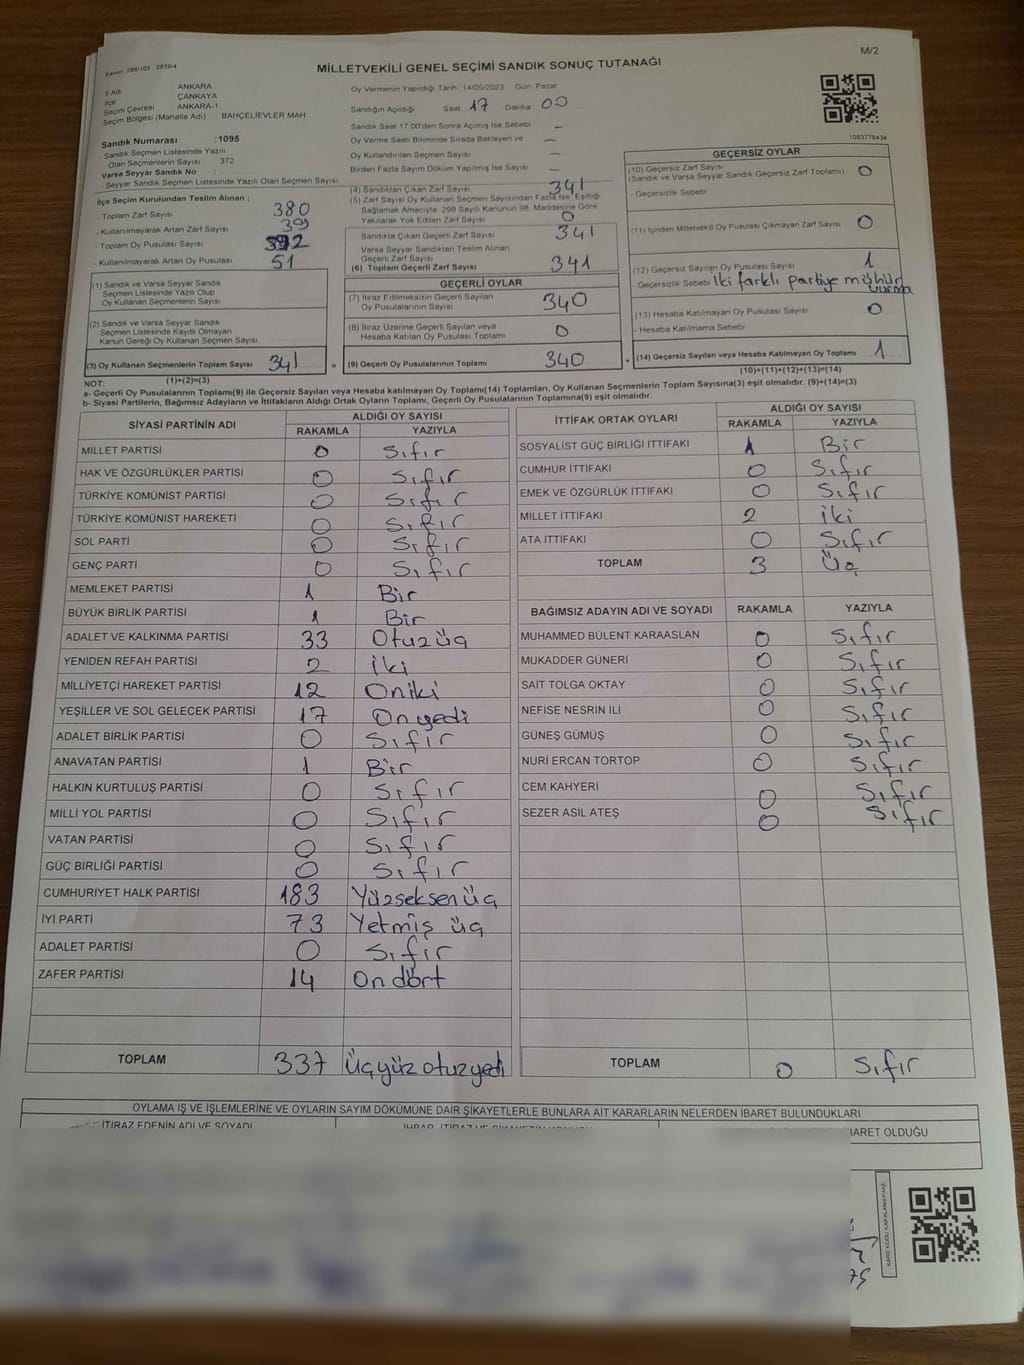 M/2
Kanun: 298/105 , 2839/4
MİLLETVEKİLİ GENEL SEÇİMİ SANDIK SONUÇ TUTANAĞI
İl Adı ANKARA
İlçe ÇANKAYA
Seçim Çevresi ANKARA-1
Seçim Bölgesi (Mahalle Adı) BAHÇELİEVLER MAH
Sandık Numarası : 1095
- Sandık Seçmen Listesinde Yazılı
Olan Seçmenlerin Sayısı : 372
Varsa Seyyar Sandık No :
- Seyyar Sandık Seçmen Listesinde Yazılı Olan Seçmen Sayısı
İlçe Seçim Kurulundan Teslim Alınan ;
- Toplam Zarf Sayısı 380
- Kullanılmayarak Artan Zarf Sayısı 39
- Toplam Oy Pusulası Sayısı 392
- Kullanılmayarak Artan Oy Pusulası 51
(1) Sandık ve Varsa Seyyar Sandık
Seçmen Listesinde Yazılı Olup
Oy Kullanan Seçmenlerin Sayısı
(2) Sandık ve Varsa Seyyar Sandık
Seçmen Listesinde Kayıtlı Olmayan
Kanun Gereği Oy Kullanan Seçmen Sayısı
(3) Oy Kullanan Seçmenlerin Toplam Sayısı 341
(1)+(2)=(3)
Oy Vermenin Yapıldığı Tarih 14/05/2023 Gün Pazar
Sandığın Açıldığı Saat 17 Dakika 00
Sandık Saat 17.00'den Sonra Açılmış İse Sebebi —
Oy Verme Saati Bitiminde Sırada Bekleyen ve —
Oy Kullandırılan Seçmen Sayısı —
Birden Fazla Sayım Döküm Yapılmış İse Sayısı —
(4) Sandıktan Çıkan Zarf Sayısı 341
(5) Zarf Sayısı Oy Kullanan Seçmen Sayısından Fazla İse, Eşitliği
Sağlamak Amacıyla, 298 Sayılı Kanunun 98. Maddesine Göre
Yakılarak Yok Edilen Zarf Sayısı 0
Sandıkta Çıkan Geçerli Zarf Sayısı 341
Varsa Seyyar Sandıktan Teslim Alınan
Geçerli Zarf Sayısı
(6) Toplam Geçerli Zarf Sayısı 341
GEÇERLİ OYLAR
(7) İtiraz Edilmeksizin Geçerli Sayılan
Oy Pusulalarının Sayısı 340
(8) İtiraz Üzerine Geçerli Sayılan veya
Hesaba Katılan Oy Pusulası Toplamı 0
= (9) Geçerli Oy Pusulalarının Toplamı 340
1063778434
GEÇERSİZ OYLAR
(10) Geçersiz Zarf Sayısı 0
(Sandık ve Varsa Seyyar Sandık Geçersiz Zarf Toplamı)
- Geçersizlik Sebebi
(11) İçinden Milletvekili Oy Pusulası Çıkmayan Zarf Sayısı 0
(12) Geçersiz Sayılan Oy Pusulası Sayısı 1
- Geçersizlik Sebebi İki farklı partiye mühür
vurma
(13) Hesaba Katılmayan Oy Pusulası Sayısı 0
- Hesaba Katılmama Sebebi
+ (14) Geçersiz Sayılan veya Hesaba Katılmayan Oy Toplamı 1
(10)+(11)+(12)+(13)=(14)
NOT:
a- Geçerli Oy Pusulalarının Toplamı(9) ile Geçersiz Sayılan veya Hesaba katılmayan Oy Toplamı(14) Toplamları, Oy Kullanan Seçmenlerin Toplam Sayısına(3) eşit olmalıdır. (9)+(14)=(3)
b- Siyasi Partilerin, Bağımsız Adayların ve İttifakların Aldığı Ortak Oyların Toplamı, Geçerli Oy Pusulalarının Toplamına(9) eşit olmalıdır.
SİYASİ PARTİNİN ADI ALDIĞI OY SAYISI
RAKAMLA YAZIYLA
MİLLET PARTİSİ 0 Sıfır
HAK VE ÖZGÜRLÜKLER PARTİSİ 0 Sıfır
TÜRKİYE KOMÜNİST PARTİSİ 0 Sıfır
TÜRKİYE KOMÜNİST HAREKETİ 0 Sıfır
SOL PARTİ 0 Sıfır
GENÇ PARTİ 0 Sıfır
MEMLEKET PARTİSİ 1 Bir
BÜYÜK BİRLİK PARTİSİ 1 Bir
ADALET VE KALKINMA PARTİSİ 33 Otuzüç
YENİDEN REFAH PARTİSİ 2 İki
MİLLİYETÇİ HAREKET PARTİSİ 12 Oniki
YEŞİLLER VE SOL GELECEK PARTİSİ 17 On yedi
ADALET BİRLİK PARTİSİ 0 Sıfır
ANAVATAN PARTİSİ 1 Bir
HALKIN KURTULUŞ PARTİSİ 0 Sıfır
MİLLİ YOL PARTİSİ 0 Sıfır
VATAN PARTİSİ 0 Sıfır
GÜÇ BİRLİĞİ PARTİSİ 0 Sıfır
CUMHURİYET HALK PARTİSİ 183 Yüzseksenüç
İYİ PARTİ 73 Yetmiş üç
ADALET PARTİSİ 0 Sıfır
ZAFER PARTİSİ 14 On dört
TOPLAM 337 Üçyüz otuzyedi
İTTİFAK ORTAK OYLARI ALDIĞI OY SAYISI
RAKAMLA YAZIYLA
SOSYALİST GÜÇ BİRLİĞİ İTTİFAKI 1 Bir
CUMHUR İTTİFAKI 0 Sıfır
EMEK VE ÖZGÜRLÜK İTTİFAKI 0 Sıfır
MİLLET İTTİFAKI 2 İki
ATA İTTİFAKI 0 Sıfır
TOPLAM 3 Üç
BAĞIMSIZ ADAYIN ADI VE SOYADI RAKAMLA YAZIYLA
MUHAMMED BÜLENT KARAASLAN 0 Sıfır
MUKADDER GÜNERİ 0 Sıfır
SAİT TOLGA OKTAY 0 Sıfır
NEFİSE NESRİN İLİ 0 Sıfır
GÜNEŞ GÜMÜŞ 0 Sıfır
NURİ ERCAN TORTOP 0 Sıfır
CEM KAHYERİ 0 Sıfır
SEZER ASİL ATEŞ 0 Sıfır
TOPLAM 0 Sıfır
OYLAMA İŞ VE İŞLEMLERİNE VE OYLARIN SAYIM DÖKÜMÜNE DAİR ŞİKAYETLERLE BUNLARA AİT KARARLARIN NELERDEN İBARET BULUNDUKLARI
İTİRAZ EDENİN ADI VE SOYADI
İBARET OLDUĞU
KARE KODU KARALAMAYINIZ!